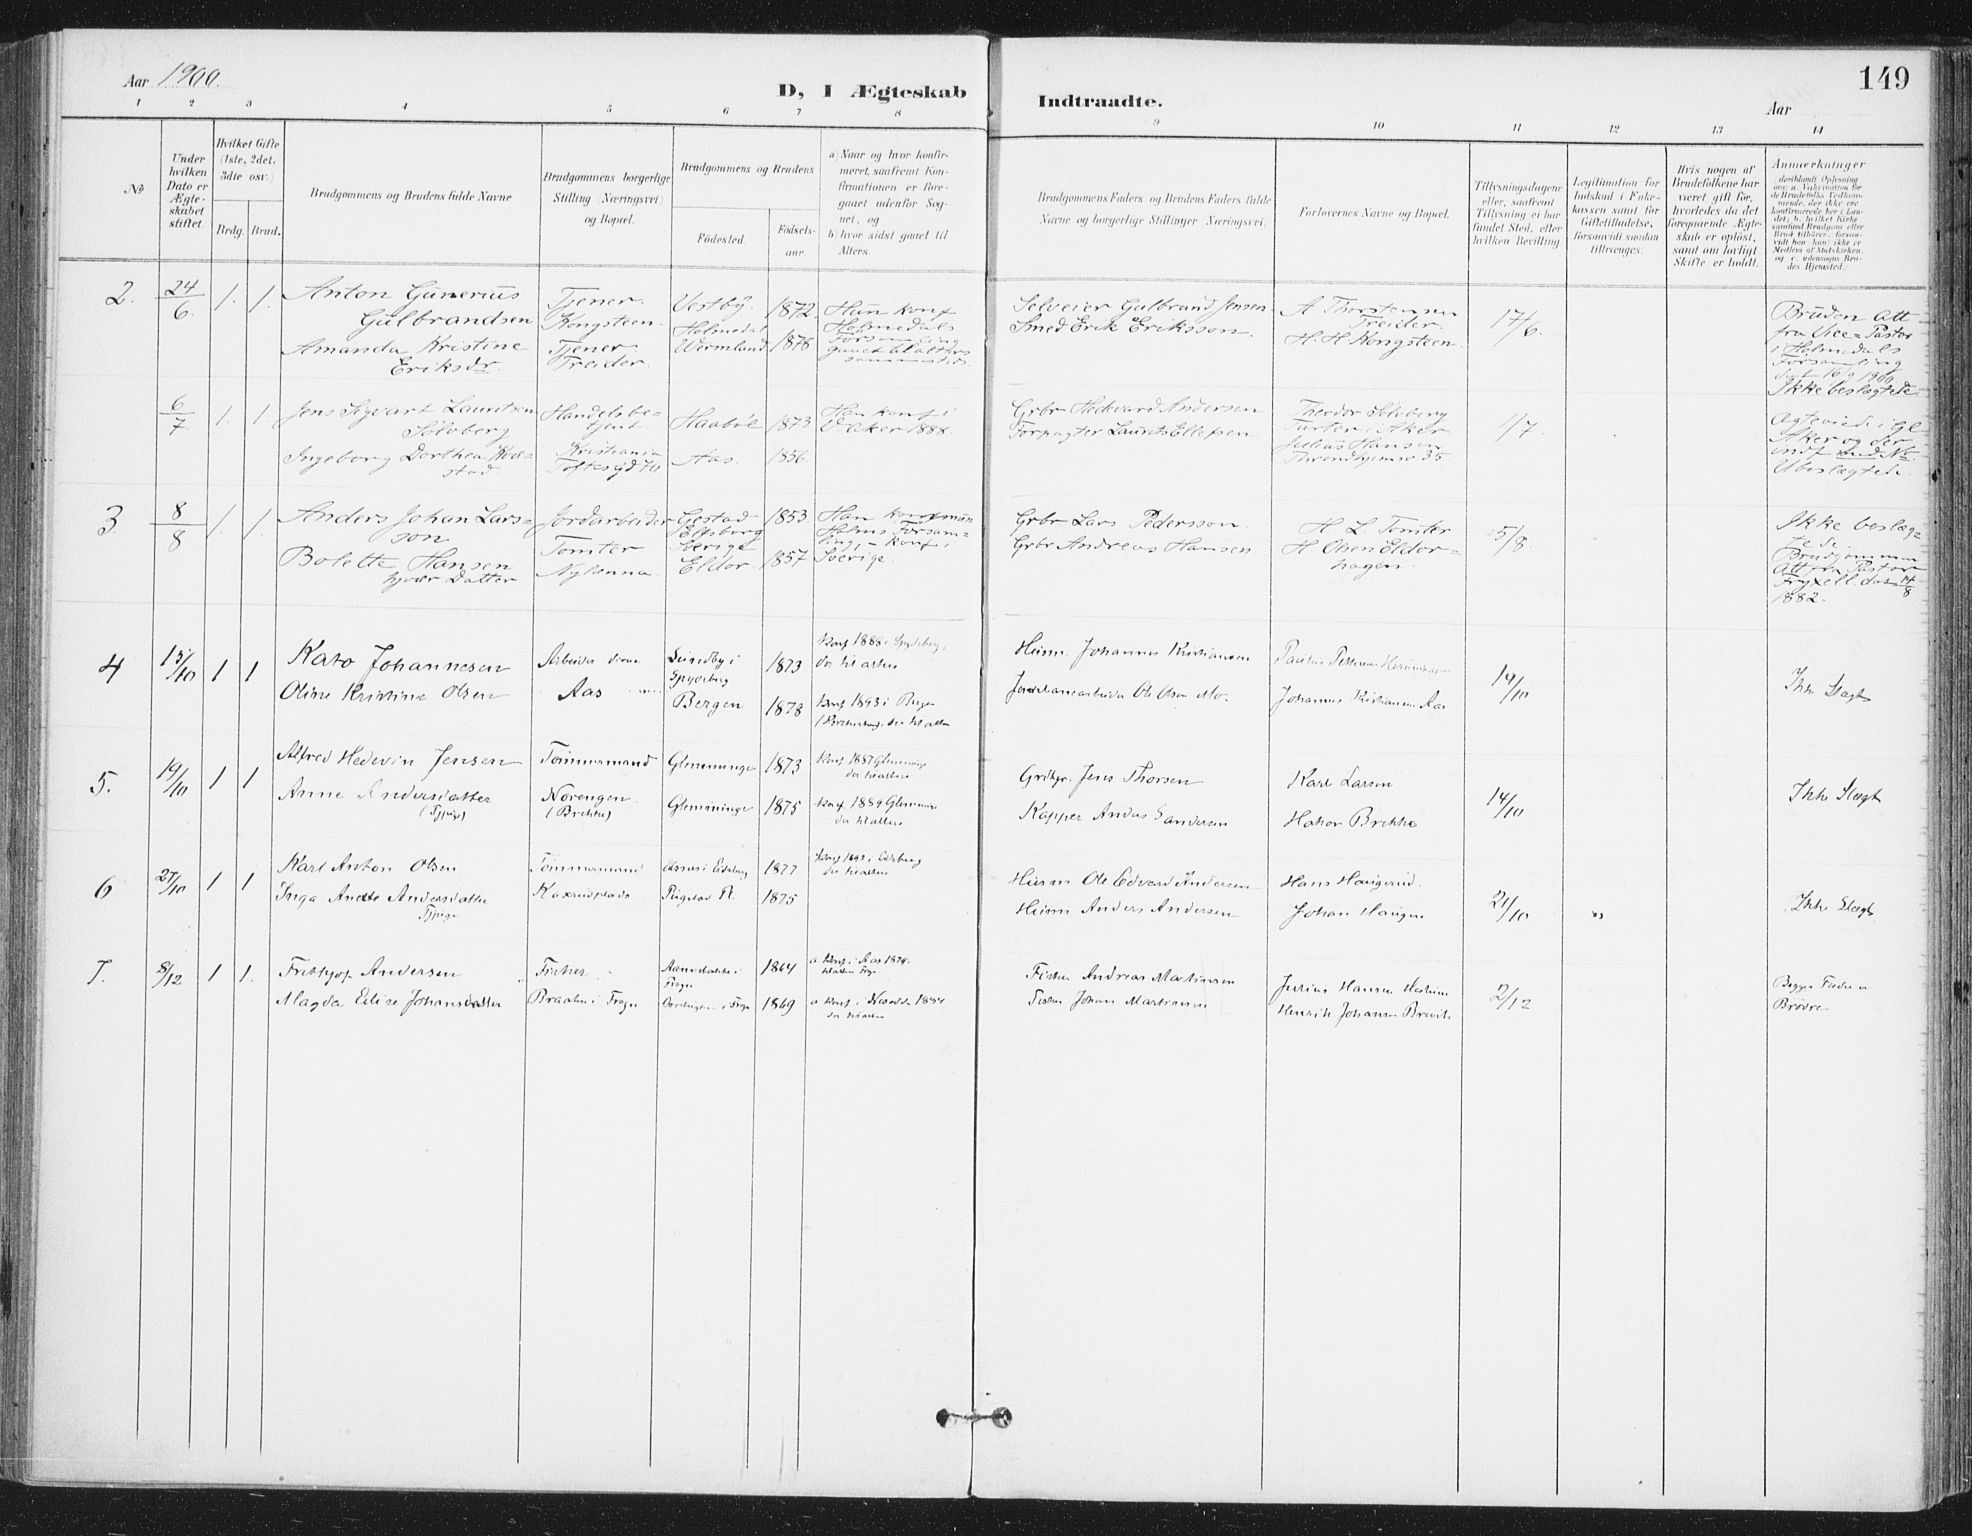 Aar 1900.
D, I Ægteskab
Indtraadte.
149
Aar
1 2 3 4 5 6 7 8
9 10 11 12 13 14
No
Under hvilken Dato er Ægteskabet stiftet.
Hvilket Gifte (1ste, 2det, 3die osv.)
Brdg. Brud.
Brudgommens og Brudens fulde Navne
Brudgommens borgerlige Stilling (Næringsvei) og Bopæl.
Brudgommens og Brudens
Fødested.
Fødselsaar.
a) Naar og hvor konfirmeret, saafremt Konfirmationen er foregaaet udenfor Sognet, og
b) hvor sidst gaaet til Alters.
Brudgommens Faders og Brudens Faders fulde Navne og borgerlige Stillinger (Næringsvei)
Forlovernes Navne og Bopæl.
Tillysningsdagene eller, saafremt Tillysning ei har fundet Sted, efter hvilken Bevilling
Legitimation for Indskud i Enkekassen samt for Giftetilladelse, forsaavidt saadan tiltrænges.
Hvis nogen af Brudefolkene har været gift før, hvorledes da det foregaaende Ægteskab er opløst, samt om lovligt Skifte er holdt.
Anmærkninger
2. 24/6 1. 1.
Anton Gunerius Gulbrandsen
Amanda Kristine Eriksdr.
Tjener. Kongsteen.
Tjener Treider.
Vestby. 1872.
Holmedal Wermland 1878
Hun konf Holmedals Forsamling
Selveier Gulbrand Jensen
Smed Erik Eriksson.
A Thorstensen Treider.
H. H Kongsteen.
17/6.
Bruden Att fra Vice-Pastor i Holmedals Forsamling
1900
Ikke beslægtede
6/7 1. 1.
Jens Sigvart Lauritsen Sølvberg
Ingeborg Dorthea
Handelsbetjent
Kristiania Toftesgd 70
Haabøl 1873
Aas. 1856.
Han konf i V Aker 1888.
Grbr Hedevard Andersen
Forpagter Laurits Ellefsen
Theodor Solvberg
i Aker
Julius Hansen
Throndhjemsv 35.
1/7.
Ægteviede i Gl Aker og der indf med No.
Ubeslægtede.
3. 8/8 1. 1.
Anders Johan Larsson
Bolette Hansen
Datter
Jordarbeider
Tomter
Nylænna.
Gestad Elfsborg Sverige 1853.
Eldor. 1857
Han konf
Holms Forsamling, - konf i Sverige.
Grbr Lars Pedersson.
Grbr Andreas Hansen.
H L. Tomter
H Olsen Eldorhagen.
5/8
Ikke beslægtede.
Brudgommen Att fra Pastor Fryxell dat 14/8 1882.
4 15/10 1 1
Kato Johannesen
Oline Kristine Olsen
Arbeider
Aas
Sundby i Spydeberg 1873
Bergen 1878
Konf 1888 i Spydeberg, der til alters
Konf 1893 i Bergen
Husm. Johannes Kristiansen
Ole Olsen Mo.
Johannes Kristiansen Aas
14/10
Ikke Slægt
5. 19/10 1 1
Alfred Hedevin Jensen
Anne Andersdatter
(Tjpige)
Tømmermand
Norengen.
(Brekke)
Glemminge 1873
Glemminge 1875
Konf 1887 Glemminge der til alters
Konf 1889 Glemminge der til alters
Grdbr. Jens Thorsen
Kapper Anders Sandersen
Karl Larsen
Hakon Brekke
14/10
Ikke Slægt
6 27/10 1 1
Karl Anton Olsen
Inga Anette Andersdatter
Tjpige
Tømmermand
i Eidsberg 1877
Rigstad R. 1875
Konf 1892 i Eidsberg der til alters
Husm Ole Edvard Andersen
Husm Anders Andersen
Hans Haugerud.
Johan Haugen
21/10
"
Ikke Slægt
7. 8/12 1 1.
Frithjof Andersen
Magda Elise Johansdatter
Fisker
Braaten i Frogn
Frogn 1864
i Frogn 1869
a Konf. i Aas 1878.
a Konf i Nesodden 1884 der til alters
Fisker Andreas Martinsen
Fisker Johan Martinsen
Julius Hansen
Henrik Johansen Brevik
2/12
Begges Fædre er Brødre